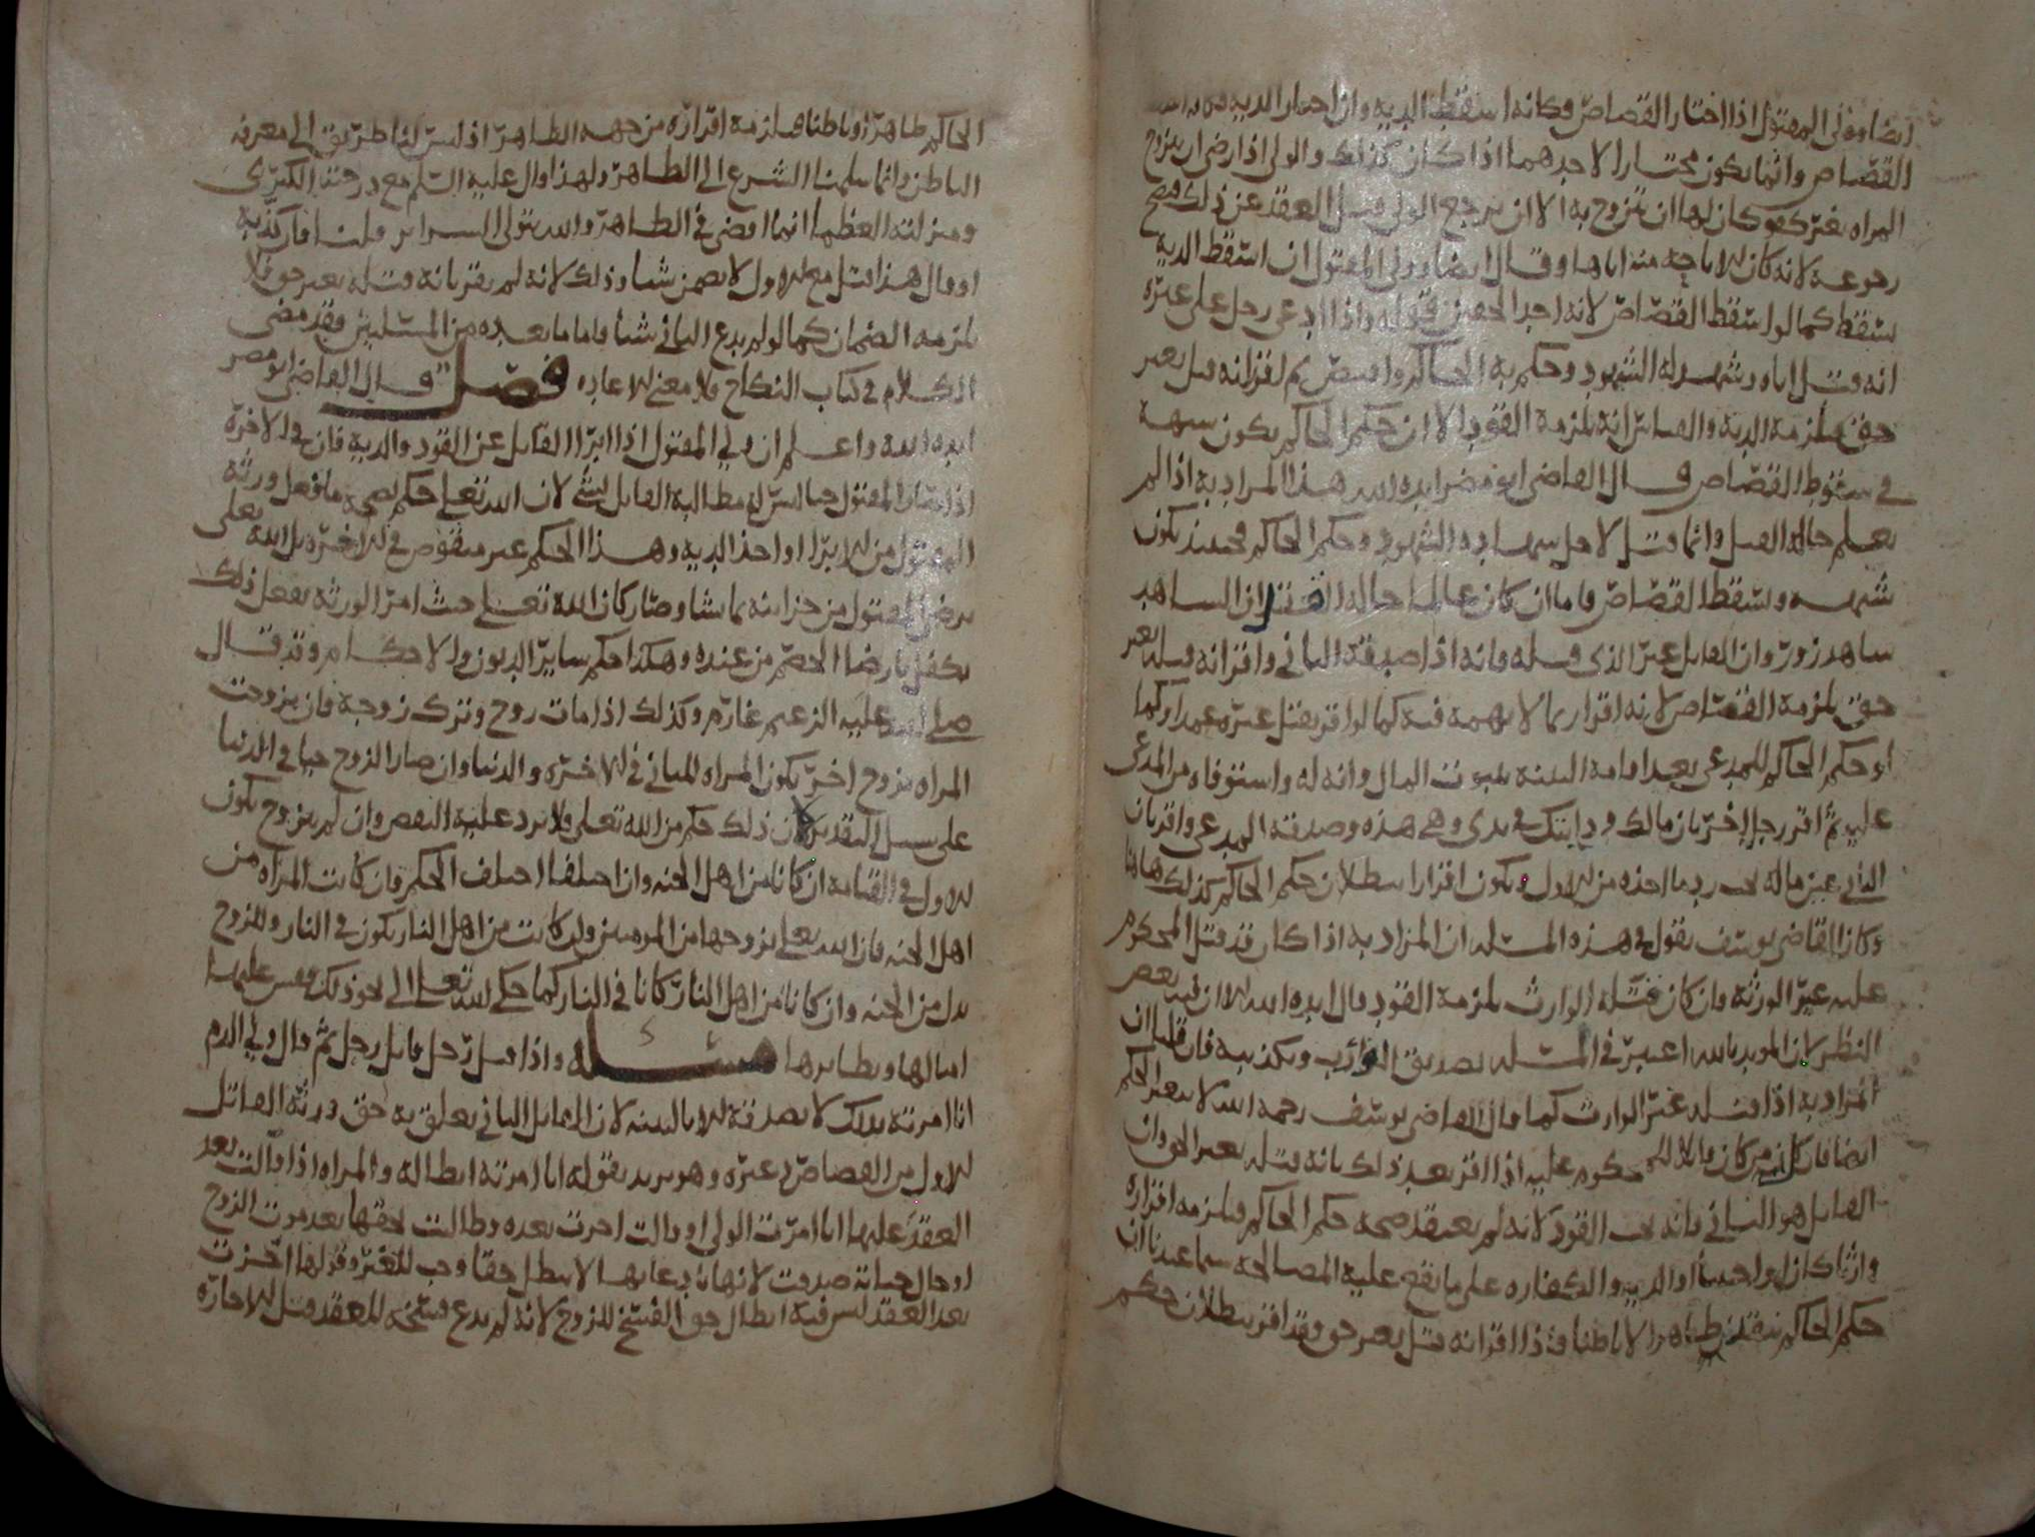 ايضا وولي المقتول اذا اختار القصاص فكانه اسقط الديه وان اختار الديه فكانه اسقط
القصاص وانما يكون مختارا لاحدهما اذا كان كذلك والولي اذا رضي ان يتزوج
المراه بغير كفو كان لها ان تتزوج به الا ان يرجع الولي قبل العقد عن ذلك فيصح
رجوعه لانه كان للاباحه منه اياها وقال ايضا وولي المقتول ان اسقط الديه
سقط كما لو اسقط القصاص لانه احد الحقين قوله واذا ادعى رجل على غيره
انه قتل اباه وشهد له الشهود وحكم به الحاكم واقتص ثم اقر انه قتل بغير
حق يلزمه الديه والقياس انه يلزمه القود الا ان حكم الحاكم يكون شبهة
في سقوط القصاص قال القاضي ابو مضر ايده الله هذا المراد به اذا لم
يعلم حاله القتل وانما قتل لاجل شهاده الشهود وحكم الحاكم فحينئذ يكون
شبهه ويسقط القصاص فاما ان كان عالما حاله القتل ان الشاهد
شاهد زور وان القاتل غير الذي قتله فانه اذا صدقه الثاني واقر انه قتله بغير
حق يلزمه القصاص لانه اقرار بما لا يهمه فيه كما لو اقر بقتل غيره عمدا وكما
لو حكم الحاكم للمدعي بعد اقامة البينة بثبوت المال وانه له واستوفاه من المدعى
عليه ثم اقر رجل اخر بان مالك ودابتك في يدي وهي هذه وصدقه المدعي واقر بان
الثاني عين ماله يجب رد ما اخذه من الاول ويكون اقرارا ببطلان حكم الحاكم كذلك هاهنا
وكان القاضي يوسف يقول في هذه المسله ان المراد به اذا كان قد قتل المحكوم
عليه غير الورثة وان كان قتله الوارث يلزمه القود قال ايده الله الا ان فيه بعض
النظر لان المويد بالله اعتبر في المسله تصديق الوارث وتكذيبه فان قلنا ان
المراد به اذا قتله غير الوارث كما قال القاضي يوسف رحمه الله لا يتغير الحكم
ايضا فان كل من كان قاتلا للمحكوم عليه اذا اقر بعد ذلك بانه قتله بغير الحق وان
القاتل هو الثاني فانه يجب القود لانه لم يعتقد صحة حكم الحاكم فيلزمه اقراره
وارثا كان او اجنبيا او الديه والكفاره على ما يقع عليه المصالحة سيما عندنا ان
حكم الحاكم ينفذ ظاهرا لا باطنا فاذا اقر انه قتل بغير حق وقد اقر ببطلان حكم
الحاكم ظاهرا وباطنا فيلزمه اقراره من جهه الظاهر اذ ليس لنا طريق الى معرفه
الباطن وانما يلجئنا الشرع الى الظاهر ولهذا قال عليه السلم مع درجته الكبرى
ومنزلته العظما انما اقضي في الظاهر والله يتولى السراير قلت فان كذبه
او قال هذا قتل مع الاول لا يضمن شيا وذلك لانه لم يقر بانه قتله بغير حق فلا
يلزمه الضمان كما لو لم يدع الثاني شيا فاما ما بعده من المسلتين فقد مضى
الكلام في كتاب النكاح فلا معنى للاعاده فصل قال القاضي ابو مضر
ايده الله واعلم ان ولي المقتول اذا ابرا القاتل عن القود والديه فان في الاخرة
اذا صار المقتول حيا ليس له مطالبة القاتل بشي لان الله تعلى حكم بصحة ما فعل ورثة
المقتول من الابرا او اخذ الديه وهذا الحكم غير منقوض في الاخره بل الله تعلى
يرضي المقتول من خزاينه بما يشا وصار كان الله تعلى حيث امر الورثه بفعل ذلك
تكفل بارضا الخصم من عنده وهكذا حكم ساير الديون والاحكام وقد قال
صلى الله عليه الزعيم غارم وكذلك اذا مات زوج وترك زوجة فان تزوجت
المراه بزوج اخر تكون المراه للثاني في الاخره والدنيا وان صار الزوج حيا في الدنيا
على سبيل التقدير لان ذلك حكم من الله تعلى ولا يرد عليه النقص وان لم يتزوج تكون
للاول في القيامة ان كانا من اهل الجنه وان اختلفا اختلف الحكم فان كانت المراه من
اهل الجنه فان الله تعلى يزوجها من المومنين وان كانت من اهل النار تكون في النار وللزوج
بدل من الجنه وان كانا من اهل النار كانا في النار كما حكى الله تعلى الى نحو ذلك وقس عليها
امثالها ونظايرها مسئله واذا قتل رجل قاتل رجل ثم قال ولي الدم
انا امرته بذلك لا يصدقه الا بالبينه لان القاتل الثاني تعلق به حق ورثة القاتل
الاول من القصاص وغيره وهو يريد بقوله انا امرته ابطاله والمراه اذا قالت بعد
العقد عليها انا امرت الولي او قالت اجزت بعده وطالبت بحقها بعد موت الزوج
او حال حياته صدقت لانها بادعايها لا تبطل حقا وجب للغير وقولها اجزت
بعد العقد ليس فيه ابطال حق الفسخ للزوج لانه لم يدع فسخه للعقد قبل الاجازه